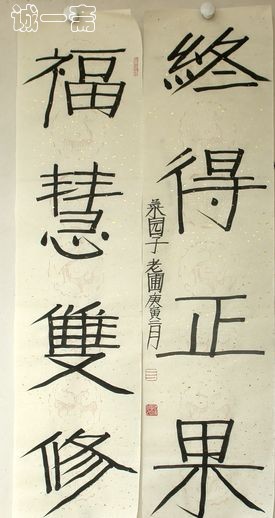 诚一斋
福慧雙修
終得正果
园子老圃庚寅二月